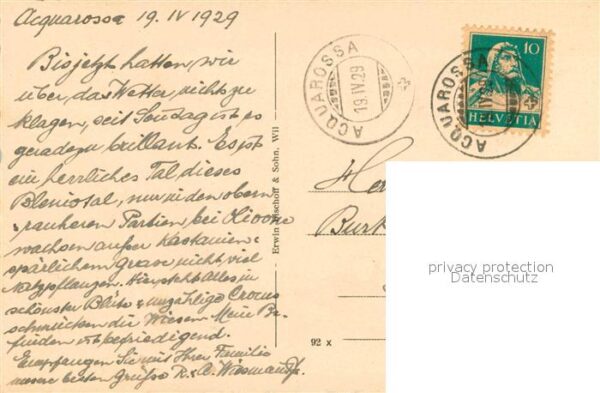 Acquarossa 19. IV 1929
Bis jetzt hatten wir
über das Wetter nichts zu
klagen, seit Sonntag ist es
geradezu brillant. Es ist
ein herrliches Tal, dieses
Bleniotal, nur in den obern
rauheren Partien, bei Olivone
wachsen außer Kastanien
spärlichem Grase nicht viel
Nutzpflanzen. Hier steht Alles in
schönster Blüte & unzählige Crocus
schmücken die Wiesen. Mein Be-
finden ist befriedigend.
Empfangen Sie mit Ihrer Familie
unsere besten Grüße
Erwin Bischoff & Sohn, Wil
92 x
ACQUAROSSA
19.IV.29
ACQUAROSSA
10
HELVETIA
Burk
privacy protection
Datenschutz